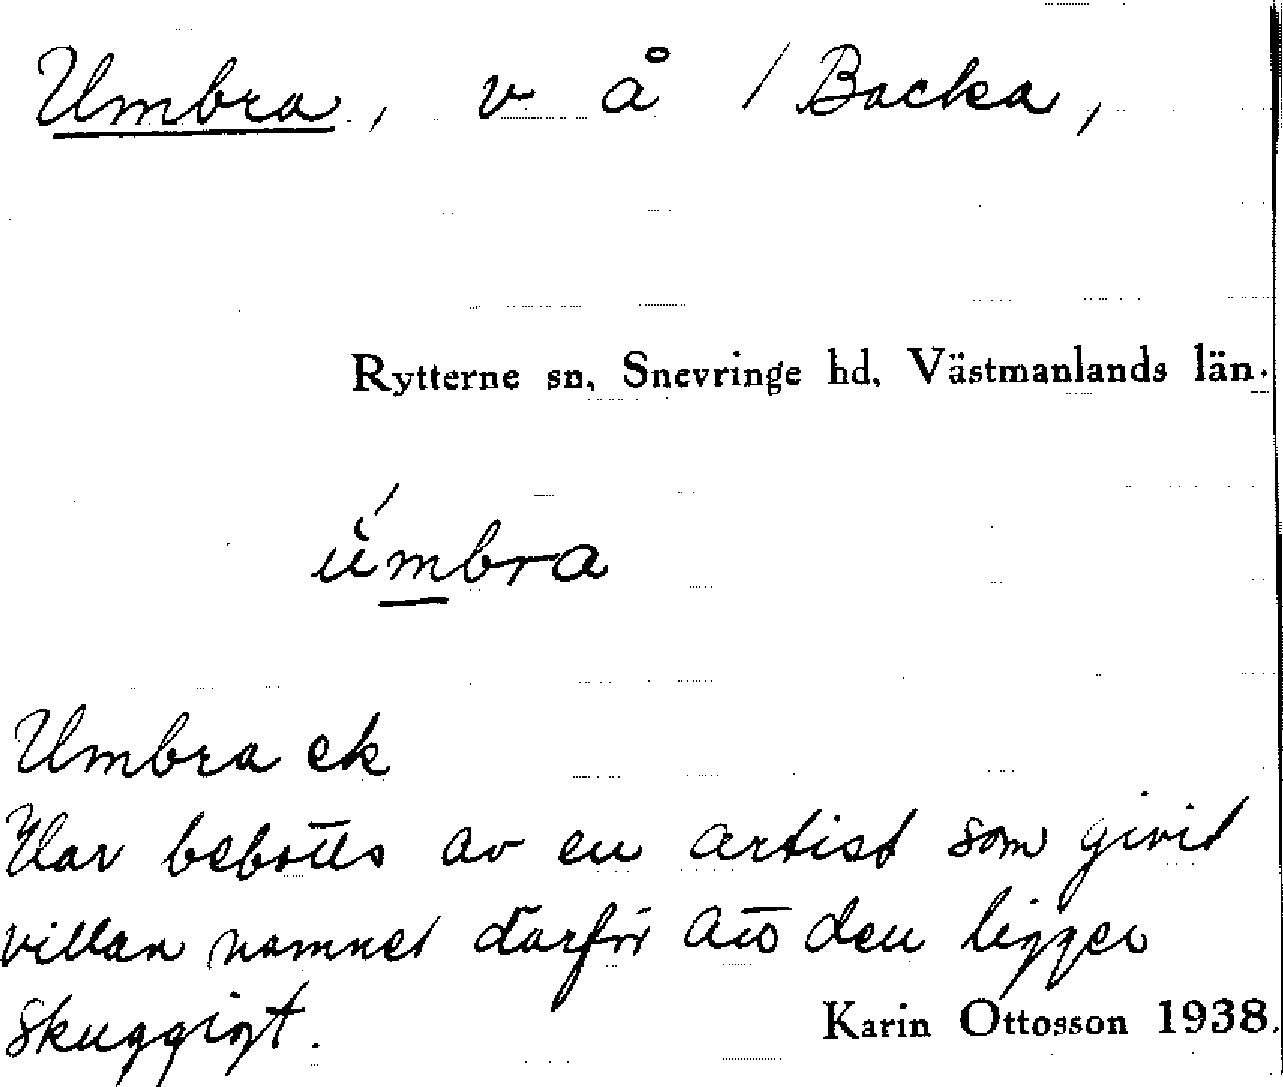 Umbra, v å / Backa,
Rytterne sn, Snevringe hd, Västmanlands län.
úmbra
Umbra ek
Har bebotts av en artist som givit
villan namnet därför att den ligger
skuggigt.
Karin Ottosson 1938.